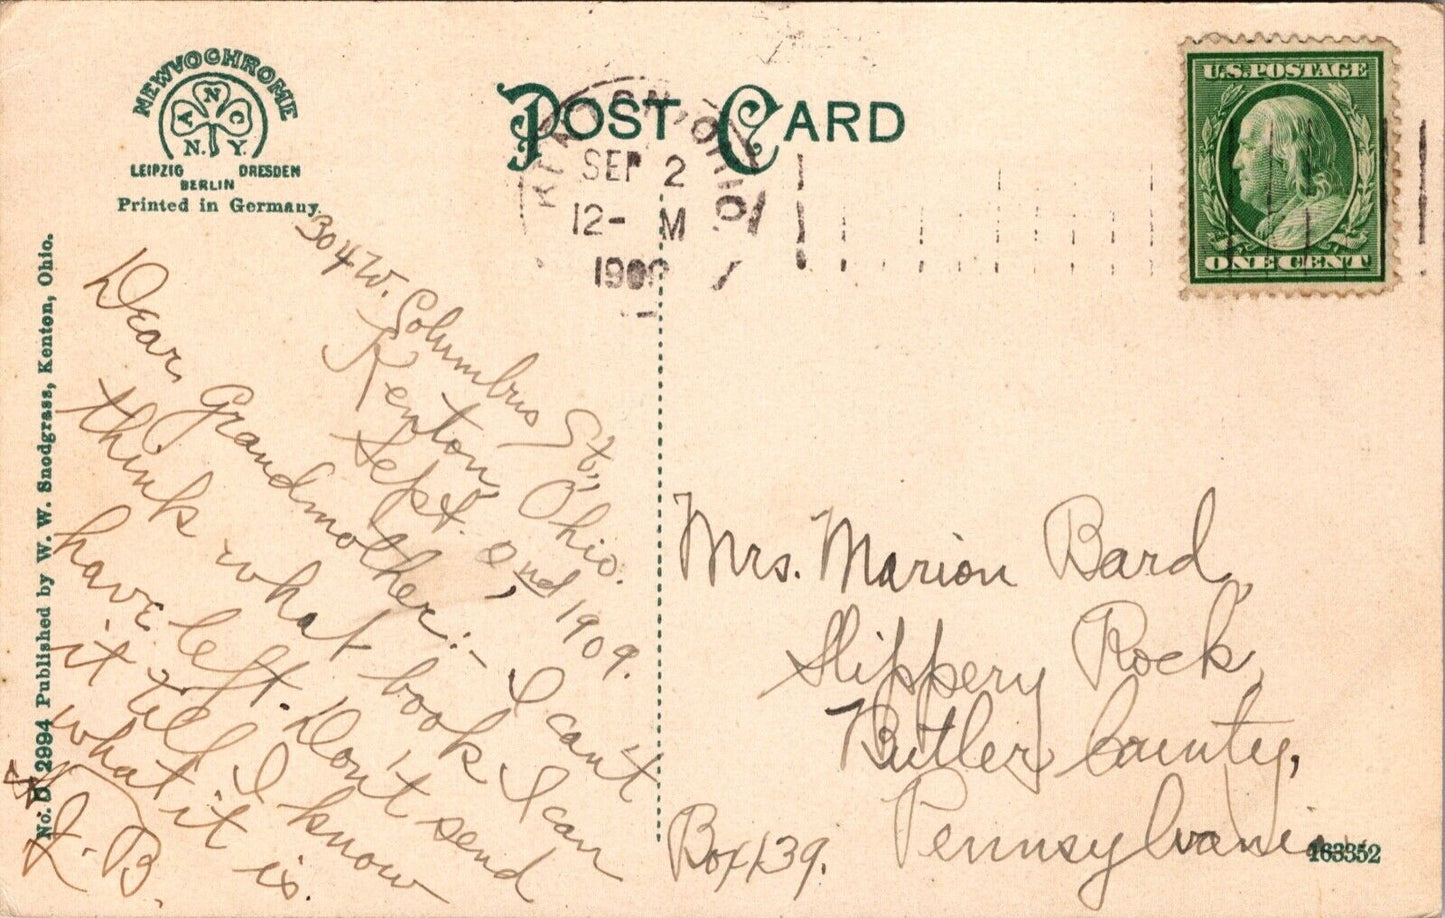 NEWVOCHROME
A N C
N. Y.
LEIPZIG DRESDEN
BERLIN
Printed in Germany.
POST CARD
KENTON, OHIO.
SEP 2
12- M
1909
U.S. POSTAGE
ONE CENT
No. D. 2994 Published by W. W. Snodgrass, Kenton, Ohio.
304 W. Columbus St.,
Kenton, Ohio.
Sept. 2nd, 1909.
Dear Grandmother:- I can't
think what book I can
have left. Don't send
it till I know
what it is.
L. B.
Mrs. Marion Bard,
Slippery Rock,
Butler County,
Pennsylvania.
Box 139.
463352